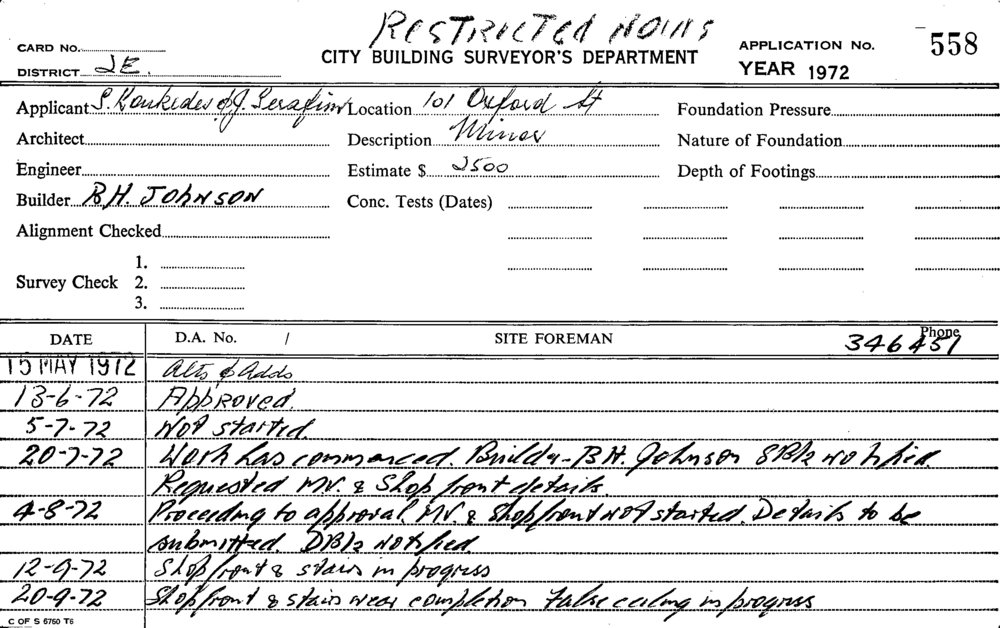 RESTRICTED HOURS
CARD No.
CITY BUILDING SURVEYOR'S DEPARTMENT
APPLICATION No. 558
DISTRICT JE.
YEAR 1972
Applicant S. Koukides & J. Serafim Location 101 Oxford St Foundation Pressure
Architect Description Minor Nature of Foundation
Engineer Estimate $ 2500 Depth of Footings
Builder B.H. JOHNSON Conc. Tests (Dates)
Alignment Checked
Survey Check 1.
2.
3.
DATE D.A. No. / SITE FOREMAN Phone 346451
15 MAY 1972 Alts & Adds
13-6-72 Approved.
5-7-72 Not started.
20-7-72 Work has commenced. Builder - B H. Johnson notified.
Requested MV. & Shop front details.
4-8-72 Proceeding to approval. MV. & Shopfront not started. Details to be
submitted. notified.
12-9-72 Shop front & stairs in progress
20-9-72 Shop front & stairs near completion False ceiling in progress
C OF S 6760 T6